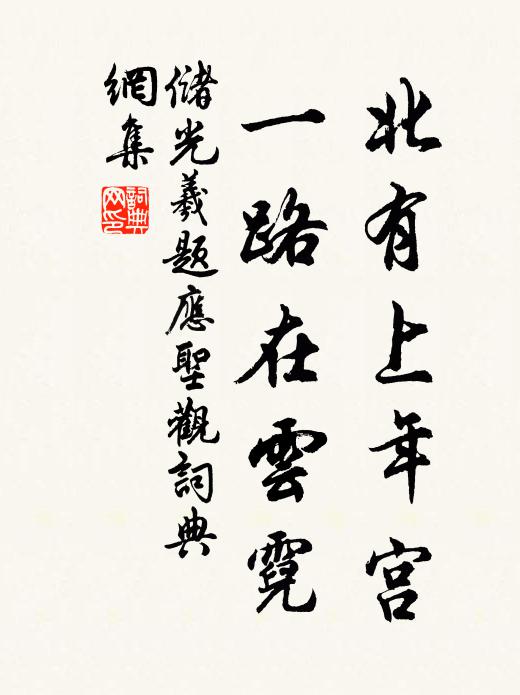 北有上年宫
一路在雲霓
儲光羲題應聖觀詞典
網集
詞典
网印